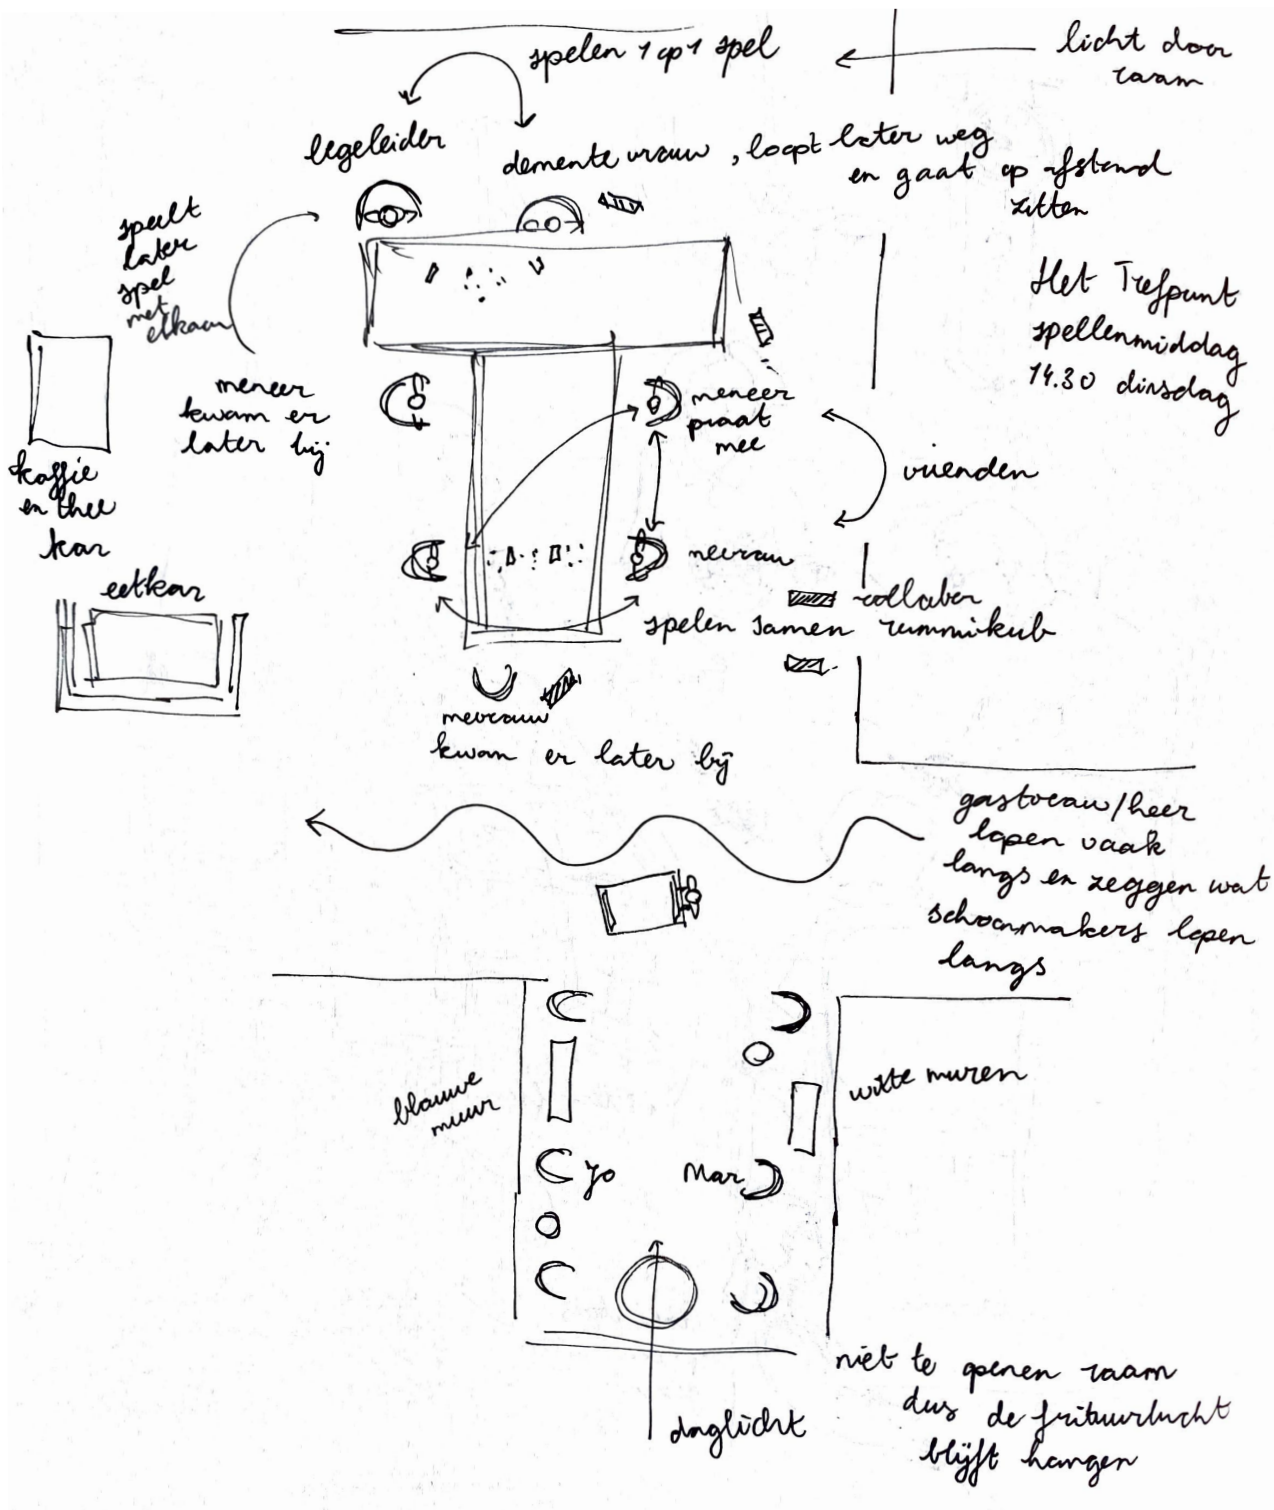 spelen 1 op 1 spel
licht door
raam
begeleider
demente vrouw, loopt later weg
en gaat op afstand
zitten
speelt
later
spel
met
elkaar
Het Trefpunt
spellenmiddag
14.30 dinsdag
meneer
kwam er
later bij
meneer
praat
mee
vrienden
koffie
en thee
kar
mevrouw
eetkar
rollater
spelen samen rummikub
mevrouw
kwam er later bij
gastvrouw/heer
lopen vaak
langs en zeggen wat
schoonmakers lopen
langs
blauwe
muur
witte muren
Jo
Mar
niet te openen raam
dus de frituurlucht
blijft hangen
daglicht